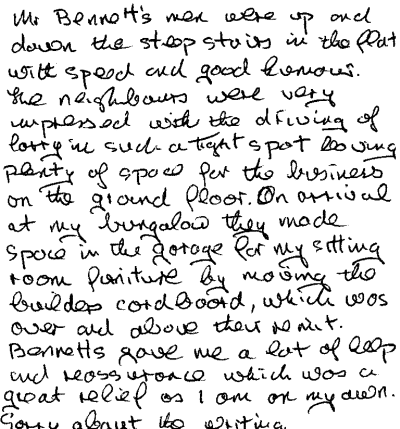 Mr Bennett's men were up and
down the steep stairs in the flat
with speed and good humour.
The neighbours were very
impressed with the driving of
lorry in such a tight spot leaving
plenty of space for the business
on the ground floor. On arrival
at my bungalow they made
space in the garage for my sitting
room furniture by moving the
builders cardboard, which was
over and above their remit.
Bennetts gave me a lot of help
and reassurance which was a
great relief as I am on my own.
Sorry about the writing.